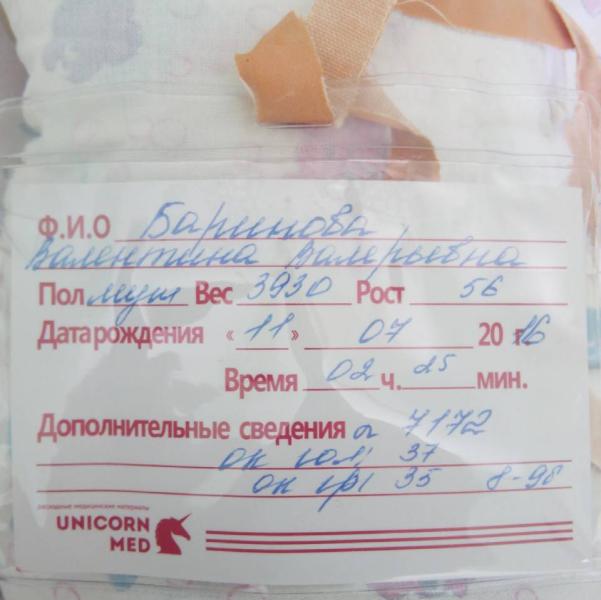 Ф.И.О Баринова
Валентина Валерьевна
Пол муж Вес 3930 Рост 56
Дата рождения «11» 07 20 16
Время 02 ч. 25 мин.
Дополнительные сведения 7172
ок гол 37
ок гр 35 8-9б
расходные медицинские материалы
UNICORN
MED